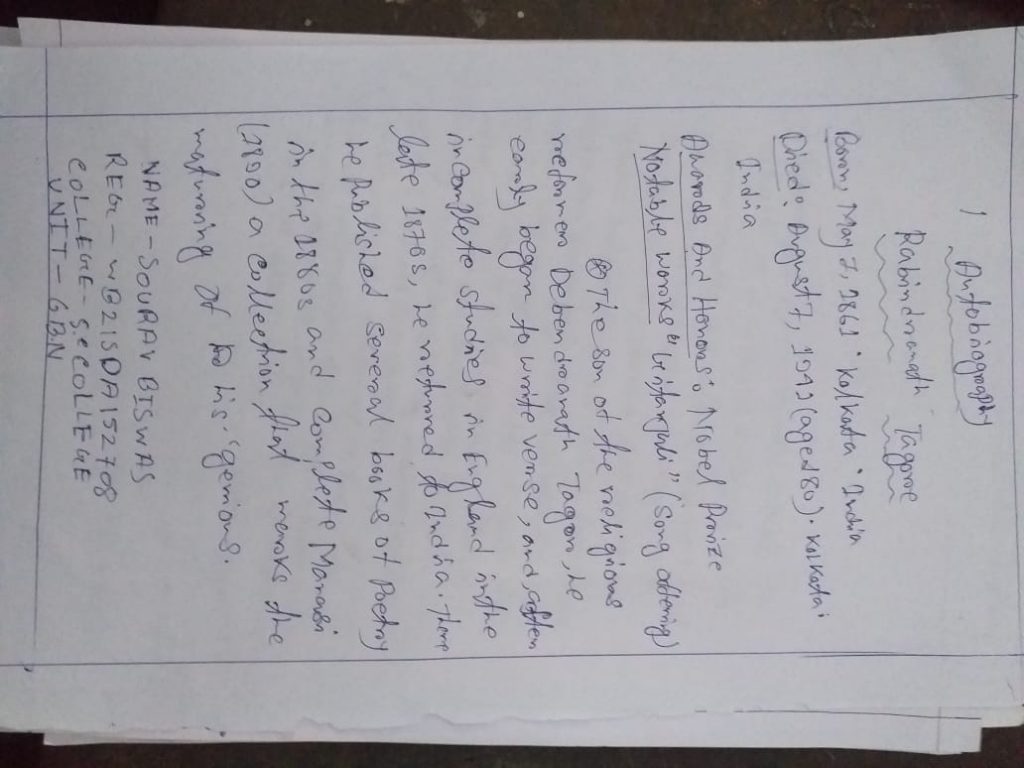 1 Autobiography
Rabindranath Tagore
Born, May 7, 1861 · Kolkata · India
Died: August 7, 1941 (aged 80) · Kolkata;
India
Awards And Honors: Nobel Prize
Notable works "Gitanjali" (Song offering)
The son of the religious
reformer Debendranath Tagore, he
early began to write verse, and, after
incomplete studies in England in the
late 1870s, he returned to India. There
he published several books of Poetry
in the 1880s and complete Manasi
(1890) a collection that marks the
maturing of his genious.
NAME - SOURAV BISWAS
REG - WB21SDA152708
COLLEGE - S.C COLLEGE
UNIT - 6BN